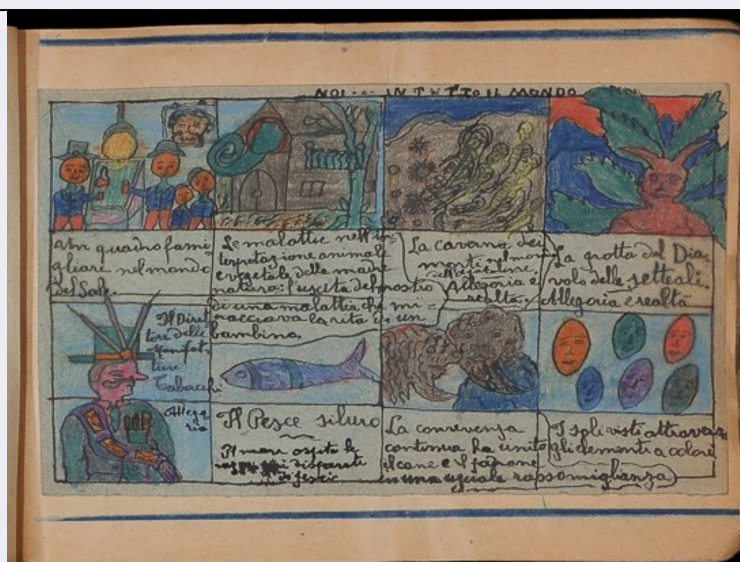 NOI... IN TUTTO IL MONDO
Un quadro fami-
gliare nel mondo
del Sole.
Le malattie nell'in-
terpretazione animale
e vegetale della madre
natura: l'uscita del mostro
di una malattia che mi-
nacciava la vita di un
bambino.
La caverna dei
morti nel mondo
Allegoria e
realtà.
La grotta del Dia-
volo delle sette ali.
Allegoria e realtà
Il Diret
tore delle
Manifat-
ture
Tabacchi
Allego
ria
Il Pesce siluro
Il mare ospita le
più disparati
di pesci
La convivenza
continua ha unito
il cane e il padrone
in una uguale rassomiglianza
I soli visti attraverso
gli elementi a colori